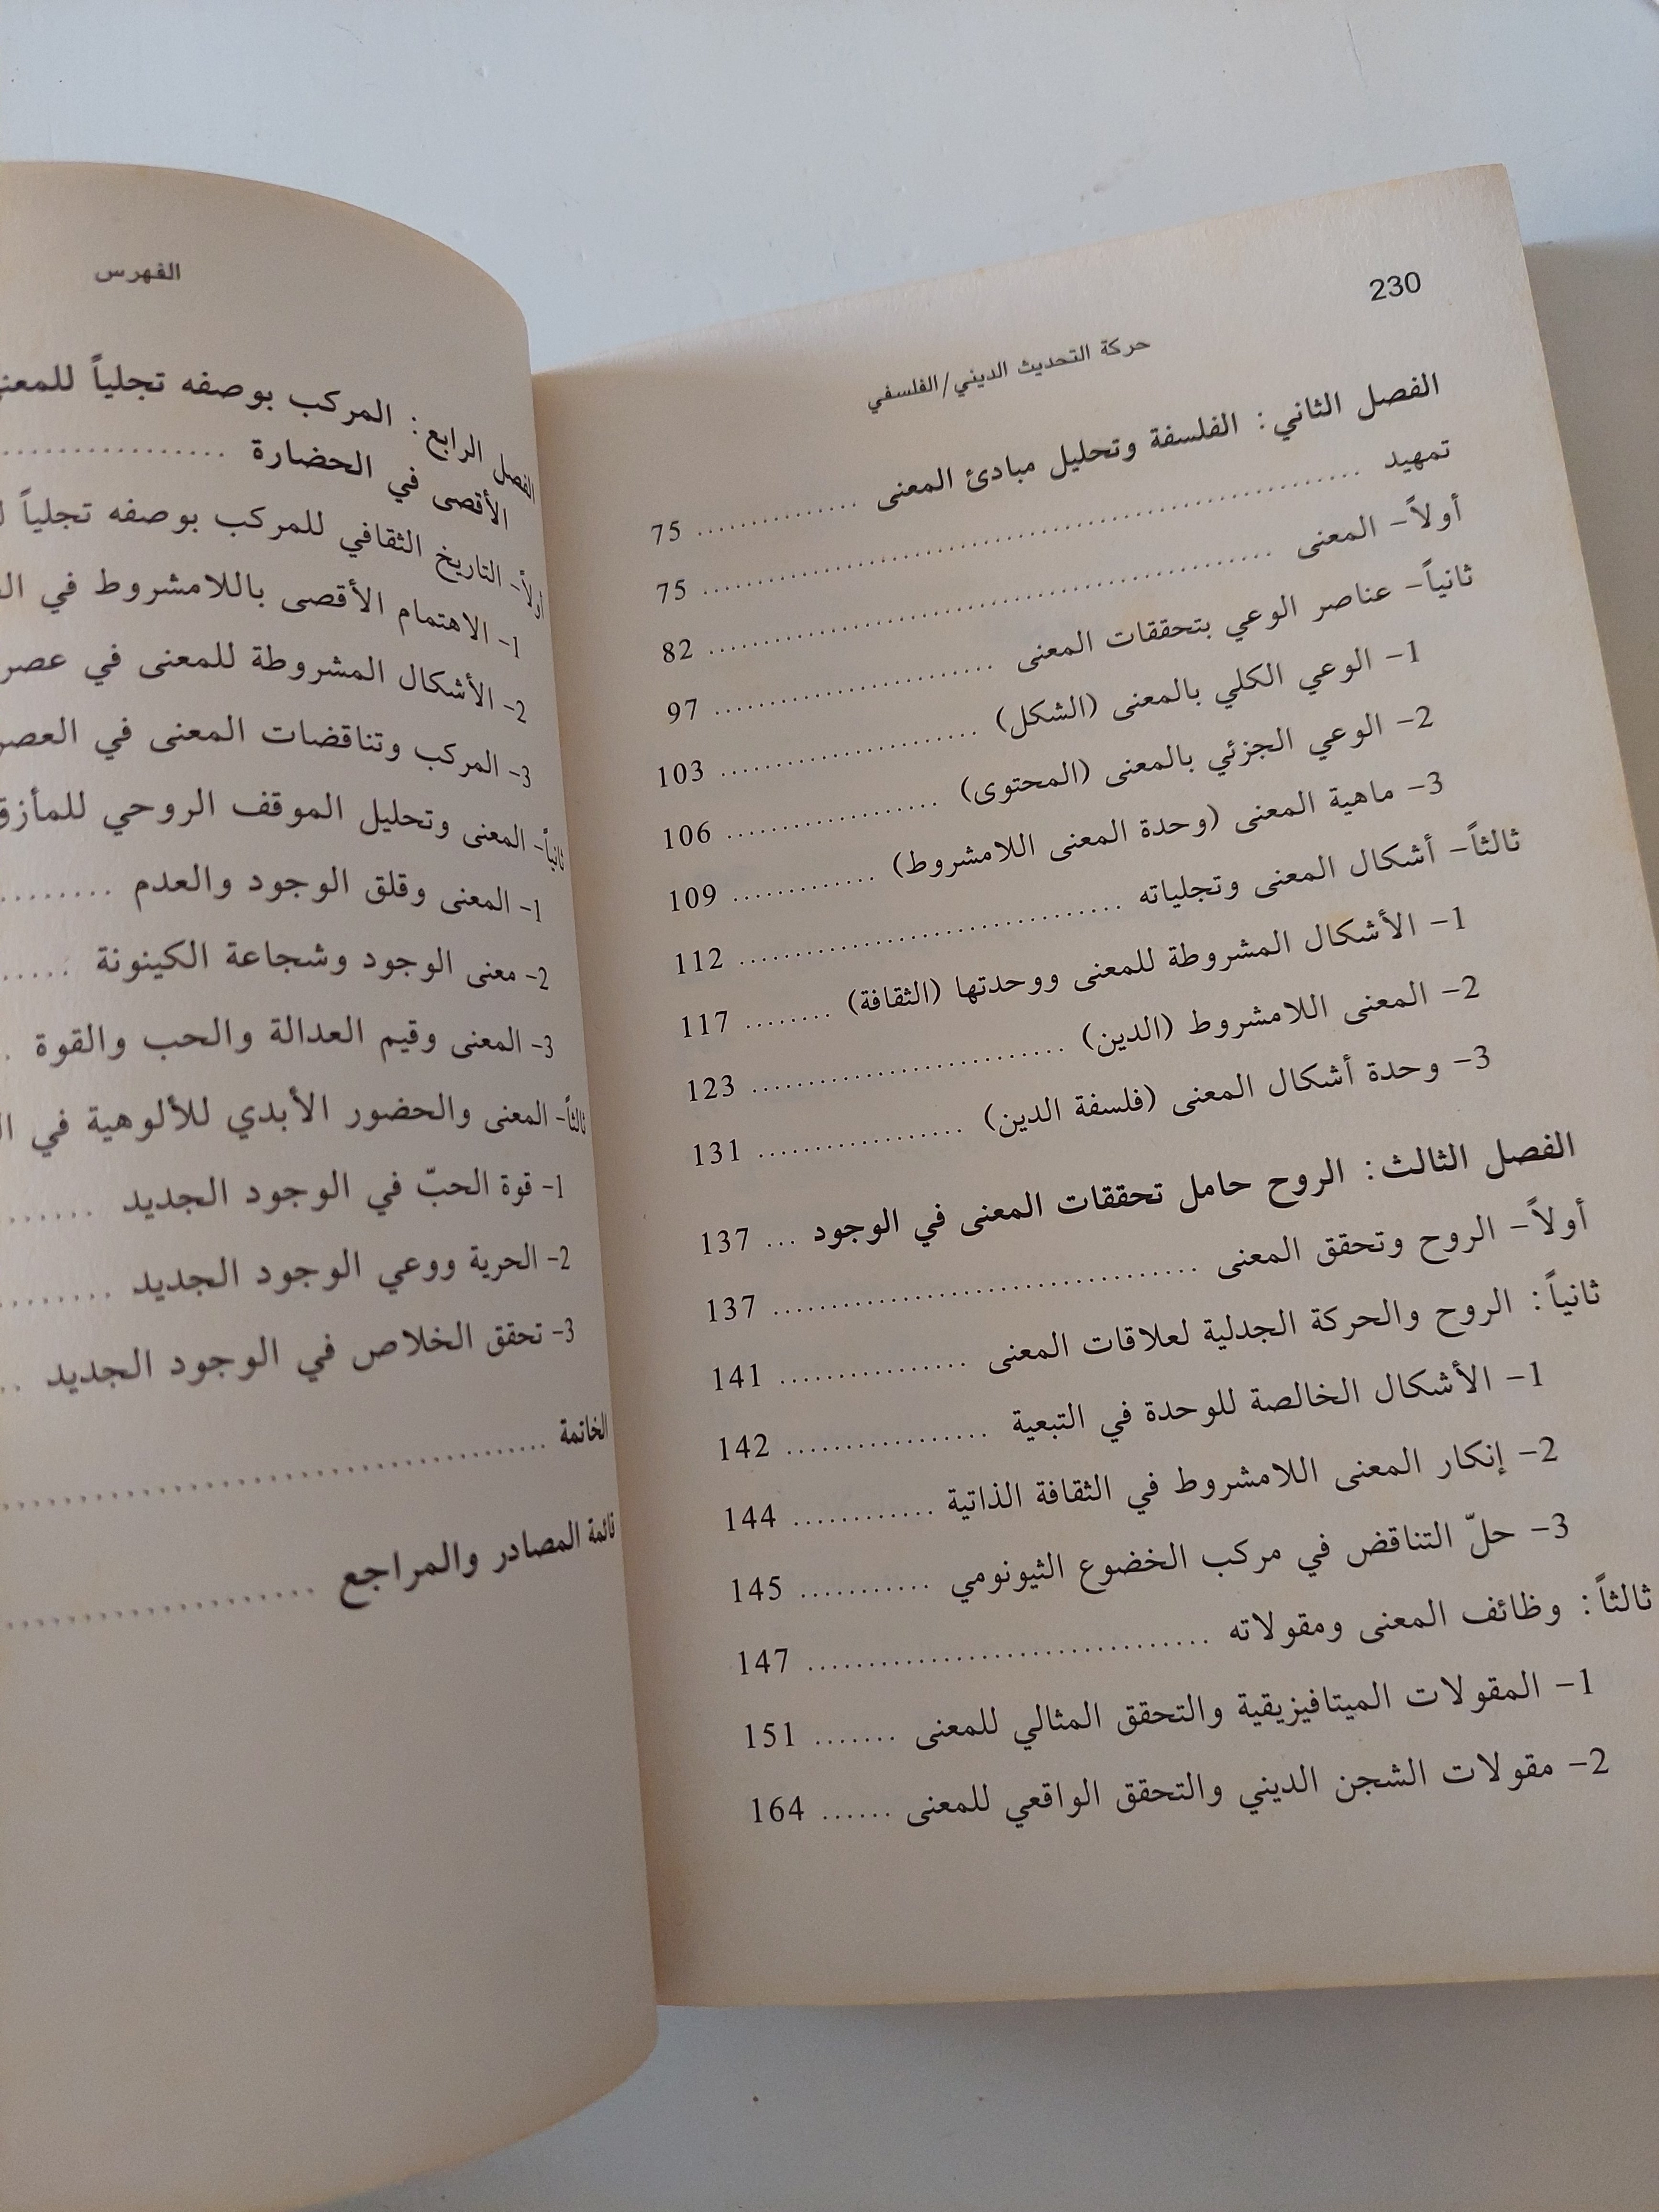 230
حركة التحديث الديني/الفلسفي
الفصل الثاني: الفلسفة وتحليل مبادئ المعنى ............... 75
تمهيد ............... 75
أولاً- المعنى ............... 82
ثانياً- عناصر الوعي بتحققات المعنى ............... 97
1- الوعي الكلي بالمعنى (الشكل) ............... 103
2- الوعي الجزئي بالمعنى (المحتوى) ............... 106
3- ماهية المعنى (وحدة المعنى اللامشروط) ............. 109
ثالثاً- أشكال المعنى وتجلياته ............... 112
1- الأشكال المشروطة للمعنى ووحدتها (الثقافة) ........ 117
2- المعنى اللامشروط (الدين) ............... 123
3- وحدة أشكال المعنى (فلسفة الدين) ............... 131
الفصل الثالث: الروح حامل تحققات المعنى في الوجود ... 137
أولاً- الروح وتحقق المعنى ............... 137
ثانياً: الروح والحركة الجدلية لعلاقات المعنى ............... 141
1- الأشكال الخالصة للوحدة في التبعية ............... 142
2- إنكار المعنى اللامشروط في الثقافة الذاتية ............ 144
3- حلّ التناقض في مركب الخضوع الثيونومي ........... 145
ثالثاً: وظائف المعنى ومقولاته ............... 147
1- المقولات الميتافيزيقية والتحقق المثالي للمعنى ....... 151
2- مقولات الشجن الديني والتحقق الواقعي للمعنى ...... 164
الفهرس
الفصل الرابع: المركب بوصفه تجلياً
الأقصى في الحضارة ...............
أولاً- التاريخ الثقافي للمركب بوصفه تجلياً
1- الاهتمام الأقصى باللامشروط في
2- الأشكال المشروطة للمعنى في عصر
3- المركب وتناقضات المعنى في
ثانياً- المعنى وتحليل الموقف الروحي
1- المعنى وقلق الوجود والعدم ........
2- معنى الوجود وشجاعة الكينونة .....
3- المعنى وقيم العدالة والحب والقوة .
ثالثاً- المعنى والحضور الأبدي للألوهية في
1- قوة الحبّ في الوجود الجديد ......
2- الحرية ووعي الوجود الجديد ........
3- تحقق الخلاص في الوجود الجديد ..
الخاتمة ...............
قائمة المصادر والمراجع ...............